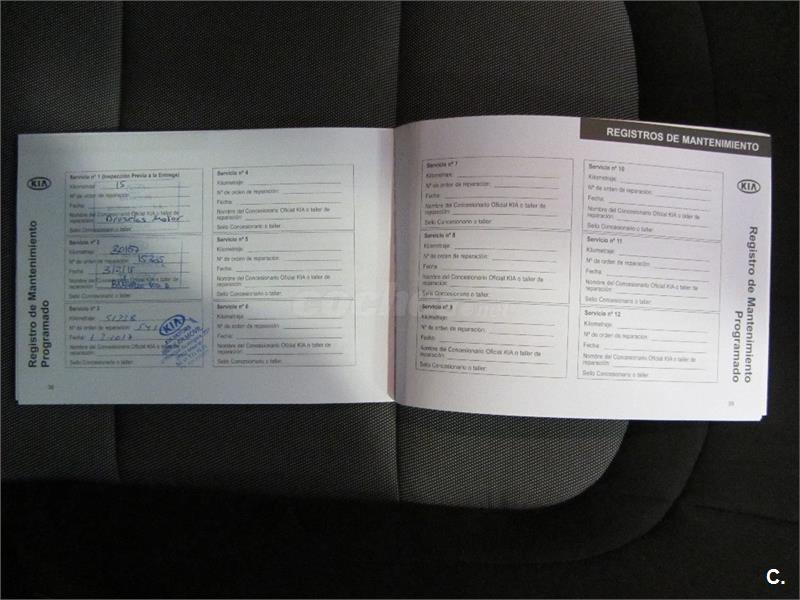 REGISTROS DE MANTENIMIENTO
KIA
Registro de Mantenimiento
Programado
Servicio nº 1 (Inspección Previa a la Entrega)
Kilometraje: 15
Nº de orden de reparación:
Fecha:
Nombre del Concesionario Oficial KIA o taller de
reparación: Motor
Sello Concesionario o taller:
Servicio nº 2
Kilometraje:
Nº de orden de reparación:
Fecha:
Nombre del Concesionario Oficial KIA o taller de
reparación:
Sello Concesionario o taller:
Servicio nº 3
Kilometraje:
Nº de orden de reparación:
Fecha:
Nombre del Concesionario Oficial KIA o taller de
reparación:
Sello Concesionario o taller:
KIA
Servicio nº 4
Kilometraje:
Nº de orden de reparación:
Fecha:
Nombre del Concesionario Oficial KIA o taller de
reparación:
Sello Concesionario o taller:
Servicio nº 5
Kilometraje:
Nº de orden de reparación:
Fecha:
Nombre del Concesionario Oficial KIA o taller de
reparación:
Sello Concesionario o taller:
Servicio nº 6
Kilometraje:
Nº de orden de reparación:
Fecha:
Nombre del Concesionario Oficial KIA o taller de
reparación:
Sello Concesionario o taller:
Servicio nº 7
Kilometraje:
Nº de orden de reparación:
Fecha:
Nombre del Concesionario Oficial KIA o taller de
reparación:
Sello Concesionario o taller:
Servicio nº 8
Kilometraje:
Nº de orden de reparación:
Fecha:
Nombre del Concesionario Oficial KIA o taller de
reparación:
Sello Concesionario o taller:
Servicio nº 9
Kilometraje:
Nº de orden de reparación:
Fecha:
Nombre del Concesionario Oficial KIA o taller de
reparación:
Sello Concesionario o taller:
Servicio nº 10
Kilometraje:
Nº de orden de reparación:
Fecha:
Nombre del Concesionario Oficial KIA o taller de
reparación:
Sello Concesionario o taller:
Servicio nº 11
Kilometraje:
Nº de orden de reparación:
Fecha:
Nombre del Concesionario Oficial KIA o taller de
reparación:
Sello Concesionario o taller:
Servicio nº 12
Kilometraje:
Nº de orden de reparación:
Fecha:
Nombre del Concesionario Oficial KIA o taller de
reparación:
Sello Concesionario o taller:
KIA
Registro de Mantenimiento
Programado
C.